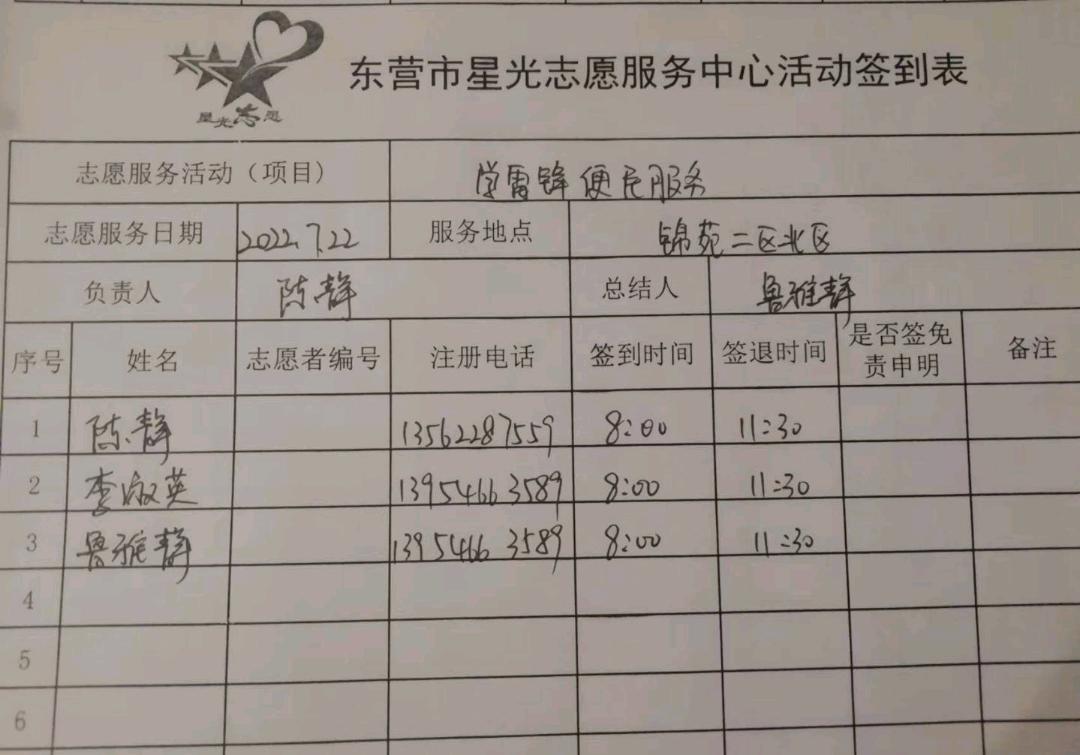 星光志愿
东营市星光志愿服务中心活动签到表
志愿服务活动（项目） 学雷锋便民服务
志愿服务日期 2022.7.22 服务地点 锦苑二区北区
负责人 陈静 总结人 鲁雅静
序号 姓名 志愿者编号 注册电话 签到时间 签退时间 是否签免责申明 备注
1 陈静 13562287559 8:00 11:30
2 李淑英 13954663589 8:00 11:30
3 鲁雅静 13954663589 8:00 11:30
4
5
6